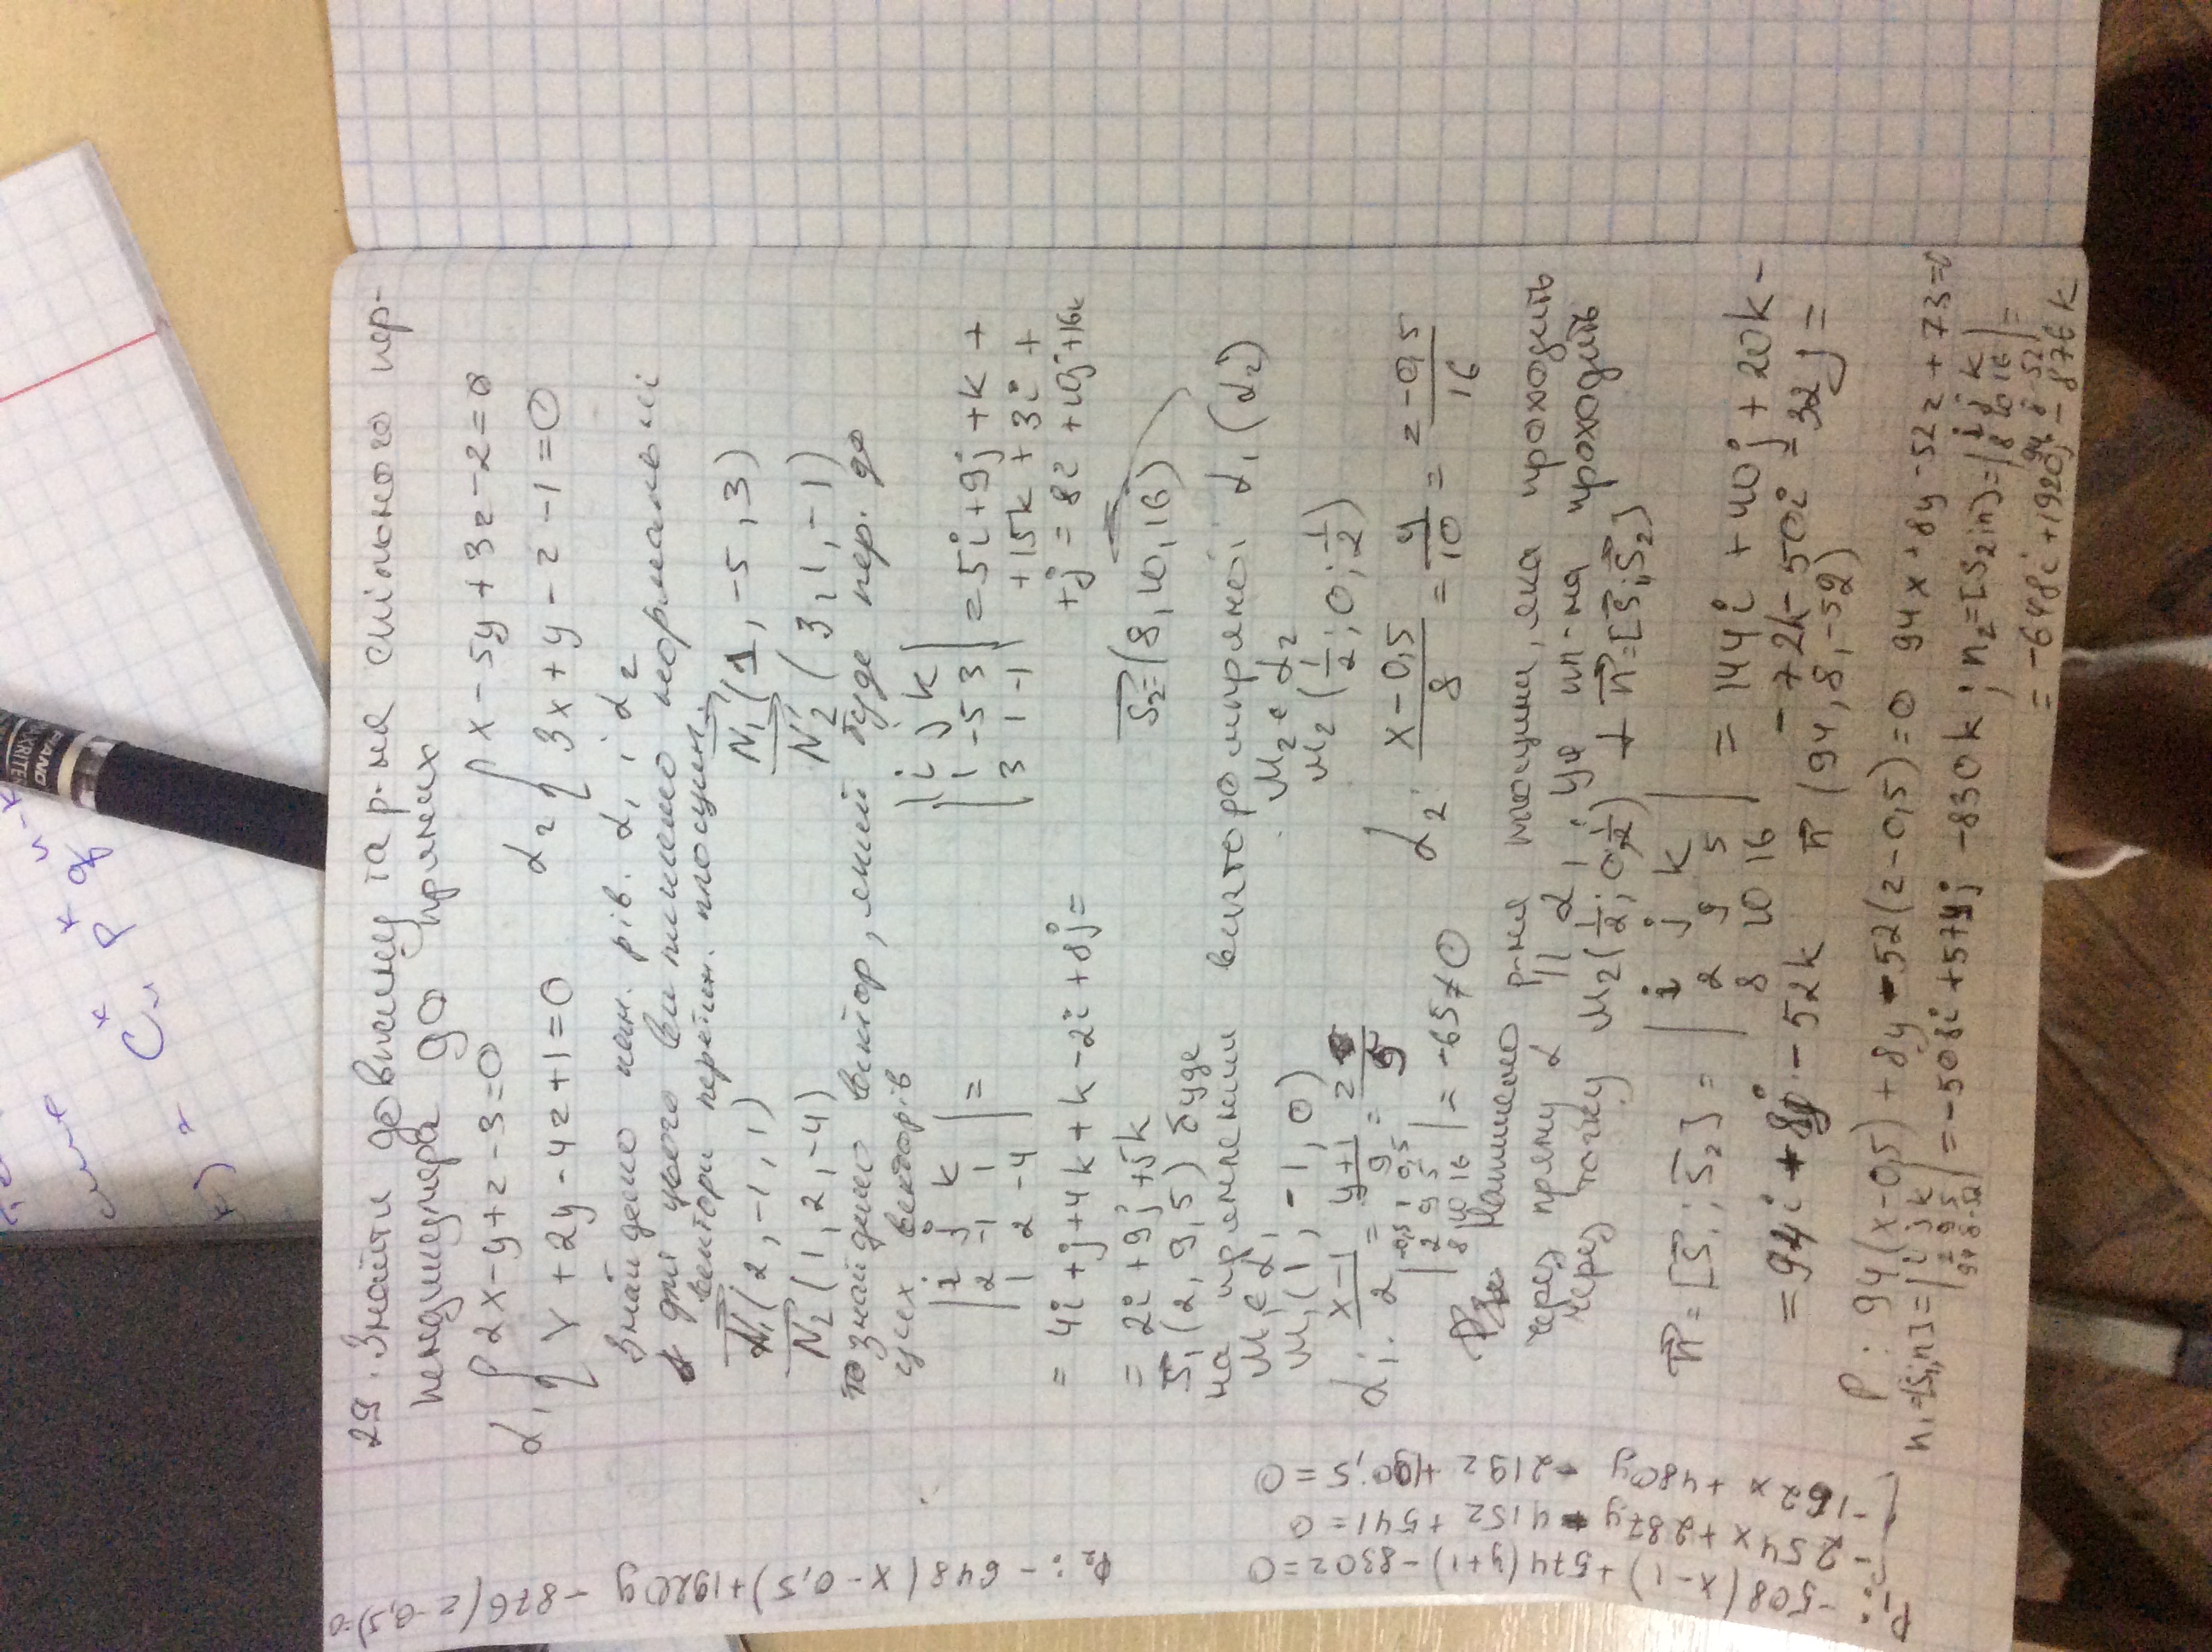 C_n^k p^k q^{n-k}
k) =
29. Знайти довжину та р-ня спільного пер-
пендикуляра до прямих
α₁ { 2x - y + z - 3 = 0
x + 2y - 4z + 1 = 0
α₂ { x - 5y + 3z - 2 = 0
3x + y - z - 1 = 0
Знайдемо кан. рів. α₁ і α₂
для цього випишемо нормальні
вектори перетин. площин.
N₁(2, -1, 1)
N₂(1, 2, -4)
N₁'(1, -5, 3)
N₂'(3, 1, -1)
то знайдемо вектор, який буде пер. до
цих векторів
| i j k |
| 2 -1 1 | =
| 1 2 -4 |
= 4i + j + 4k + k - 2i + 8j =
= 2i + 9j + 5k
S₁(2, 9, 5) буде
| i j k |
| 1 -5 3 | = 5i + 9j + k +
| 3 1 -1 | + 15k + 3i +
+ j = 8i + 10j + 16k
S₂ = (8, 10, 16)
напрямленим вектором прямої α₁ (α₂)
M₁ ∈ α₁
M₁(1, -1, 0)
α₁: (x-1)/2 = (y+1)/9 = z/5
M₂ ∈ α₂
M₂(1/2; 0; 1/2)
α₂: (x-0,5)/8 = y/10 = (z-0,5)/16
| -0,5 1 0,5 |
| 2 9 5 |
| 8 10 16 | = -65 ≠ 0
Напишемо р-ня площини, яка проходить
через пряму α || α₁. Ця пл-на проходить
через точку M₂(1/2; 0; 1/2) ⊥ n = [S₁; S₂]
n = [S₁; S₂] = | i j k |
| 2 9 5 |
| 8 10 16 | = 144i + 40j + 20k -
- 72k - 50i - 32j =
= 94i + 8j - 52k n (94, 8, -52)
P: 94(x-0,5) + 8y - 52(z-0,5) = 0 94x + 8y - 52z + 73 = 0
n₁ = [S₁, n] = | i j k |
| 2 9 5 |
| 94 8 -52 | = -508i + 574j - 830k; n₂ = [S₂; n] = | i j k |
| 8 10 16 |
| 94 8 -52 | =
= -648i + 1920j - 876k
P₁: -508(x-1) + 574(y+1) - 830z = 0
{ -254x + 287y - 415z + 541 = 0
-162x + 480y - 219z + 190,5 = 0
P₂: -648(x-0,5) + 1920y - 876(z-0,5) = 0